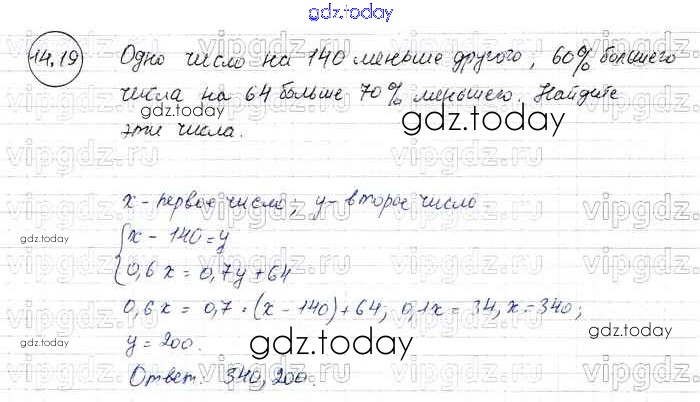 gdz.today
14.19 Одно число на 140 меньше другого, 60% большего
числа на 64 больше 70% меньшего. Найдите
gdz.today
gdz.today
эти числа.
x - первое число, y - второе число
gdz.today
{x - 140 = y
0,6x = 0,7y + 64
0,6x = 0,7 · (x - 140) + 64; 0,1x = 34, x = 340;
gdz.today
y = 200.
gdz.today
Ответ: 340, 200.